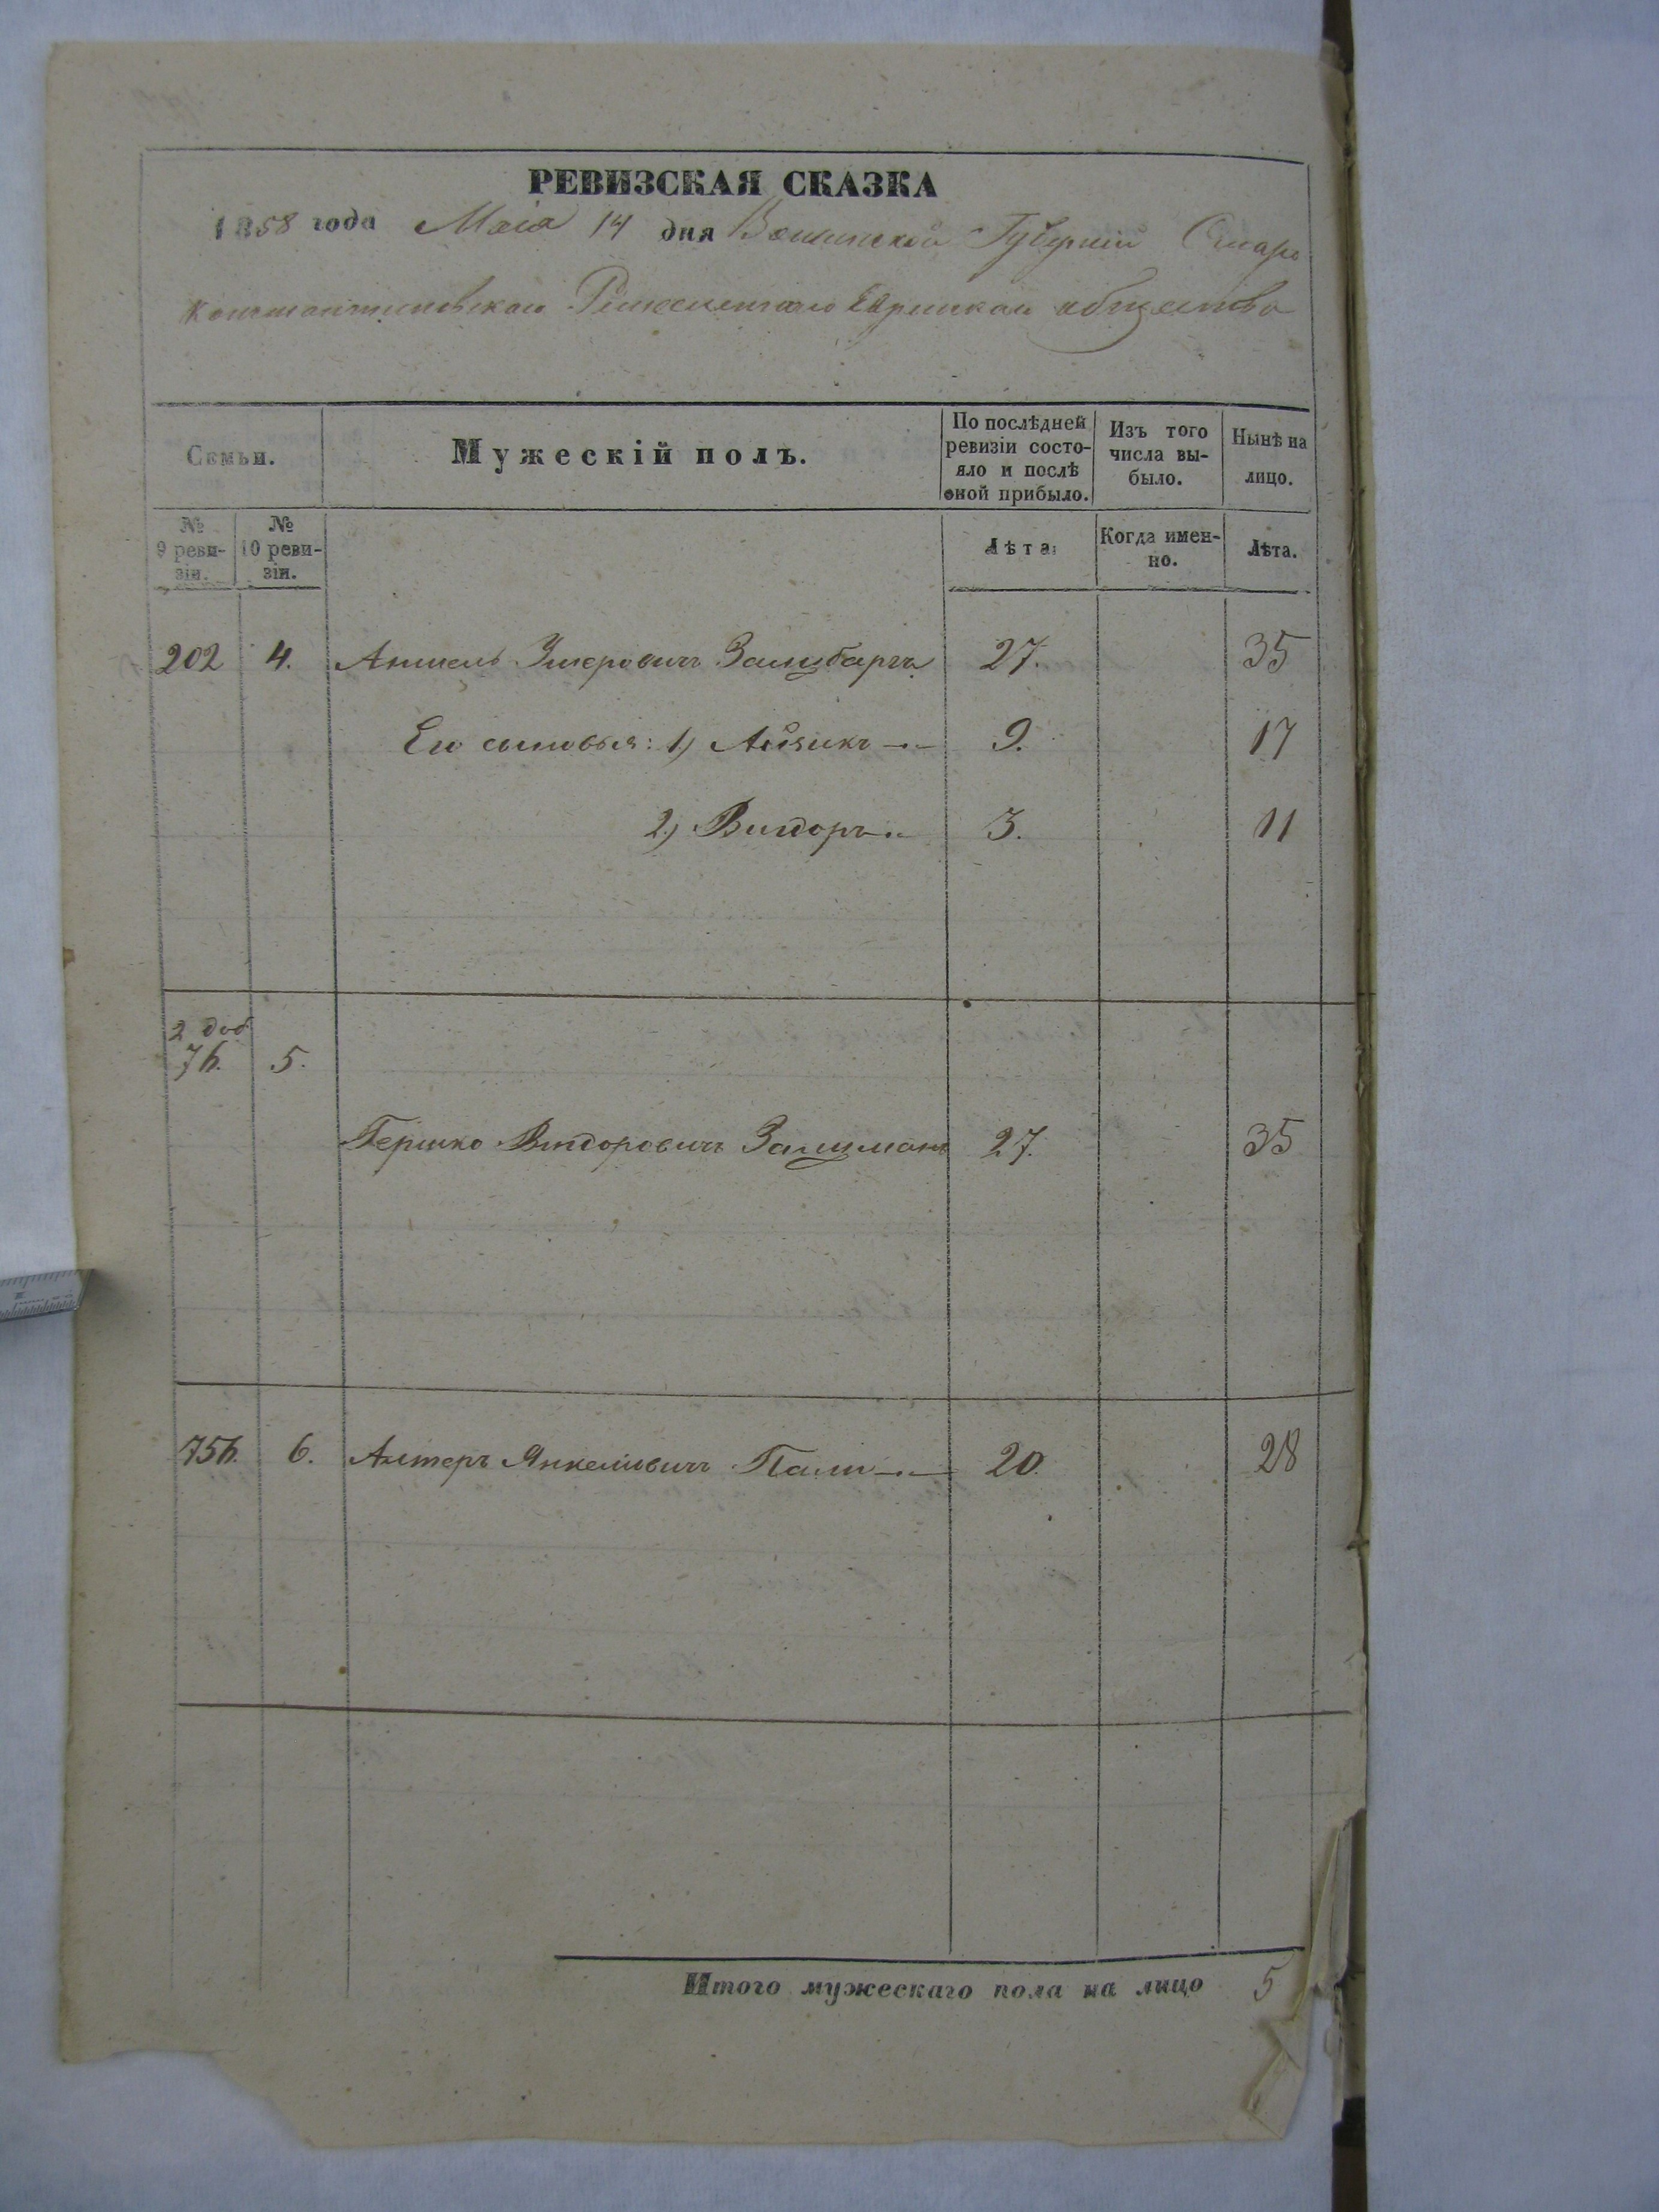 РЕВИЗСКАЯ СКАЗКА
1858 года Маія 14 дня Волынской Губерніи Старо
константиновскаго Еврейскаго общества
Семьи.
Мужескій полъ.
По послѣдней ревизіи состо-
яло и послѣ оной прибыло.
Изъ того числа вы-
было.
Нынѣ на лицо.
№ 9 реви-
зіи.
№ 10 реви-
зіи.
Лѣта.
Когда имен-
но.
Лѣта.
202 4. Аншель Зальцбаргъ 27. 35
Его сыновья: 1) Айзикъ 9. 17
2) Вигдоръ 3. 11
2 доб
76. 5.
Гершко Вигдоровичъ Зальцманъ 27. 35
756. 6. Алтеръ Янкелевичъ 20. 28
Итого мужескаго пола на лицо 5